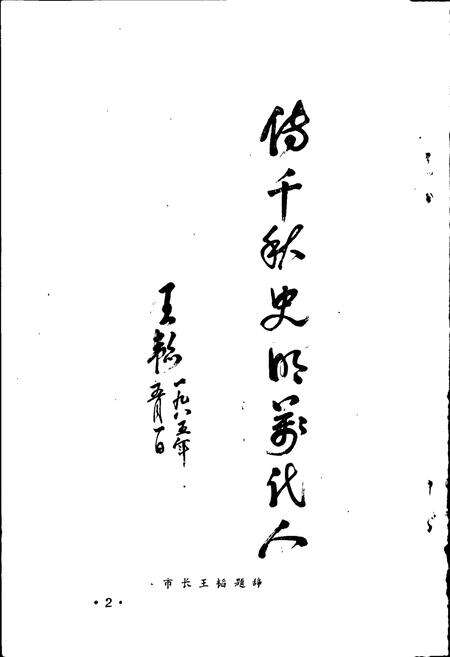 传千秋史明万代人
王韬
一九八五年
五月一日
市长王韬题辞
·2·